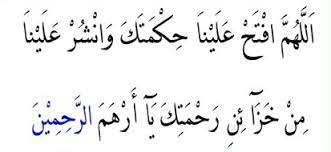 اَللَّهُمَّ افْتَحْ عَلَيْنَا حِكْمَتَكَ وَانْشُرْ عَلَيْنَا
مِنْ خَزَآئِنِ رَحْمَتِكَ يَآ أَرْهَمَ الرَّحِمِيْنَ